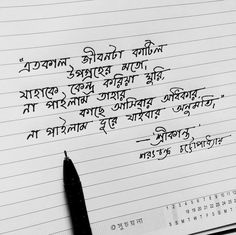 "এতকাল জীবনটা কাটিল
উপগ্রহের মতো,
যাহাকে কেন্দ্র করিয়া ঘুরি,
না পাইলাম তাহার
কাছে আসিবার অধিকার,
না পাইলাম দূরে যাইবার অনুমতি।"
-'শ্রীকান্ত'
-শরৎচন্দ্র চট্টোপাধ্যায়